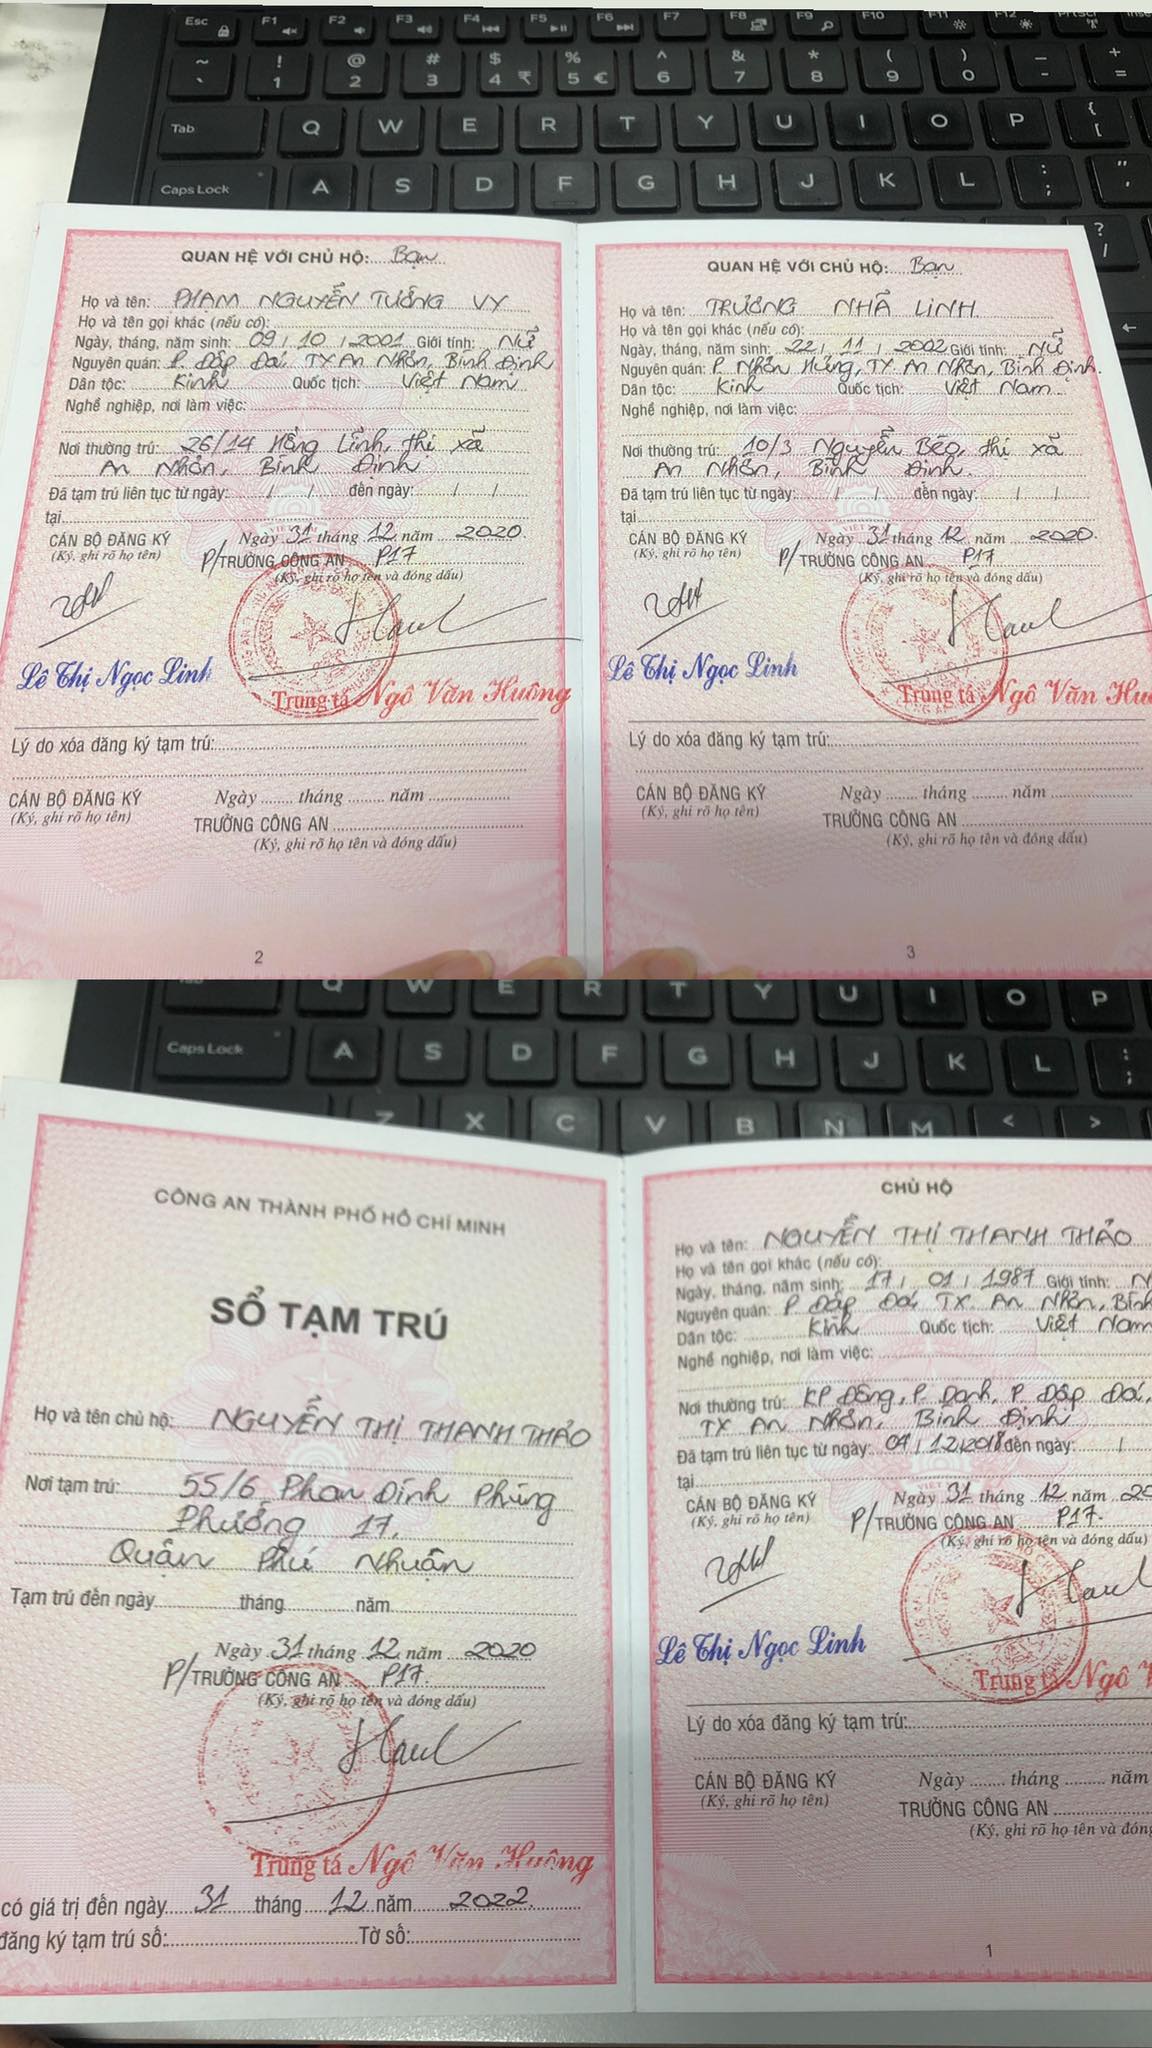 Esc F1 F2 F3 F4 F5 F6 F7 F8 F9 F10 F11 F12 PrtScr Inse
~ ` ! 1 @ 2 # 3 $ 4 ₹ % 5 € ^ 6 & 7 * 8 ( 9 ) 0 _ - + =
Tab Q W E R T Y U I O P { [
Caps Lock A S D F G H J K L : ; " '
? /
QUAN HỆ VỚI CHỦ HỘ: Bạn
Họ và tên: PHẠM NGUYỄN TƯỜNG VY
Họ và tên gọi khác (nếu có):
Ngày, tháng, năm sinh: 09 / 10 / 2001 Giới tính: Nữ
Nguyên quán: P. Đập Đá, TX An Nhơn, Bình Định
Dân tộc: Kinh Quốc tịch: Việt Nam
Nghề nghiệp, nơi làm việc:
Nơi thường trú: 26/14 Hồng Lĩnh, thị xã
An Nhơn, Bình Định.
Đã tạm trú liên tục từ ngày: / / đến ngày: / /
tại
CÁN BỘ ĐĂNG KÝ Ngày 31 tháng 12 năm 2020.
(Ký, ghi rõ họ tên) P/TRƯỞNG CÔNG AN P17
(Ký, ghi rõ họ tên và đóng dấu)
Lê Thị Ngọc Linh
Trung tá Ngô Văn Hường
Lý do xóa đăng ký tạm trú:
CÁN BỘ ĐĂNG KÝ Ngày ........ tháng ........ năm
(Ký, ghi rõ họ tên) TRƯỞNG CÔNG AN
(Ký, ghi rõ họ tên và đóng dấu)
2
QUAN HỆ VỚI CHỦ HỘ: Bạn
Họ và tên: TRƯƠNG NHÃ LINH
Họ và tên gọi khác (nếu có):
Ngày, tháng, năm sinh: 22 / 11 / 2002 Giới tính: Nữ
Nguyên quán: P Nhơn Hưng, TX An Nhơn, Bình Định.
Dân tộc: Kinh Quốc tịch: Việt Nam
Nghề nghiệp, nơi làm việc:
Nơi thường trú: 10/3 Nguyễn Bèo, thị xã
An Nhơn, Bình Định.
Đã tạm trú liên tục từ ngày: / / đến ngày: / /
tại
CÁN BỘ ĐĂNG KÝ Ngày 31 tháng 12 năm 2020.
(Ký, ghi rõ họ tên) P/TRƯỞNG CÔNG AN P17
(Ký, ghi rõ họ tên và đóng dấu)
Lê Thị Ngọc Linh
Trung tá Ngô Văn Hư
Lý do xóa đăng ký tạm trú:
CÁN BỘ ĐĂNG KÝ Ngày ........ tháng ........ năm
(Ký, ghi rõ họ tên) TRƯỞNG CÔNG AN
(Ký, ghi rõ họ tên và đóng dấu)
3
Q W E R T Y U I O P
Caps Lock A S D F G H J K L : ;
Z X C V B N M < >
CÔNG AN THÀNH PHỐ HỒ CHÍ MINH
SỔ TẠM TRÚ
Họ và tên chủ hộ: NGUYỄN THỊ THANH THẢO
Nơi tạm trú: 55/6 Phan Đình Phùng
Phường 17,
Quận Phú Nhuận
Tạm trú đến ngày tháng năm
Ngày 31 tháng 12 năm 2020
P/TRƯỞNG CÔNG AN P17.
(Ký, ghi rõ họ tên và đóng dấu)
Trung tá Ngô Văn Hường
có giá trị đến ngày 31 tháng 12 năm 2022.
đăng ký tạm trú số: Tờ số:
CHỦ HỘ
Họ và tên: NGUYỄN THỊ THANH THẢO
Họ và tên gọi khác (nếu có):
Ngày, tháng, năm sinh: 17 / 01 / 1987 Giới tính: N
Nguyên quán: P Đập Đá, TX. An Nhơn, Bình
Dân tộc: Kinh Quốc tịch: Việt Nam
Nghề nghiệp, nơi làm việc:
Nơi thường trú: KP Đông, P. Danh, P. Đập Đá,
TX An Nhơn, Bình Định
Đã tạm trú liên tục từ ngày: 04 / 12 / 2018 đến ngày: /
tại
CÁN BỘ ĐĂNG KÝ Ngày 31 tháng 12 năm 20
(Ký, ghi rõ họ tên) P/TRƯỞNG CÔNG AN P17.
(Ký, ghi rõ họ tên và đóng dấu)
Lê Thị Ngọc Linh
Trung tá Ngô V
Lý do xóa đăng ký tạm trú:
CÁN BỘ ĐĂNG KÝ Ngày ........ tháng ........ năm
(Ký, ghi rõ họ tên) TRƯỞNG CÔNG AN
(Ký, ghi rõ họ tên và đóng
1